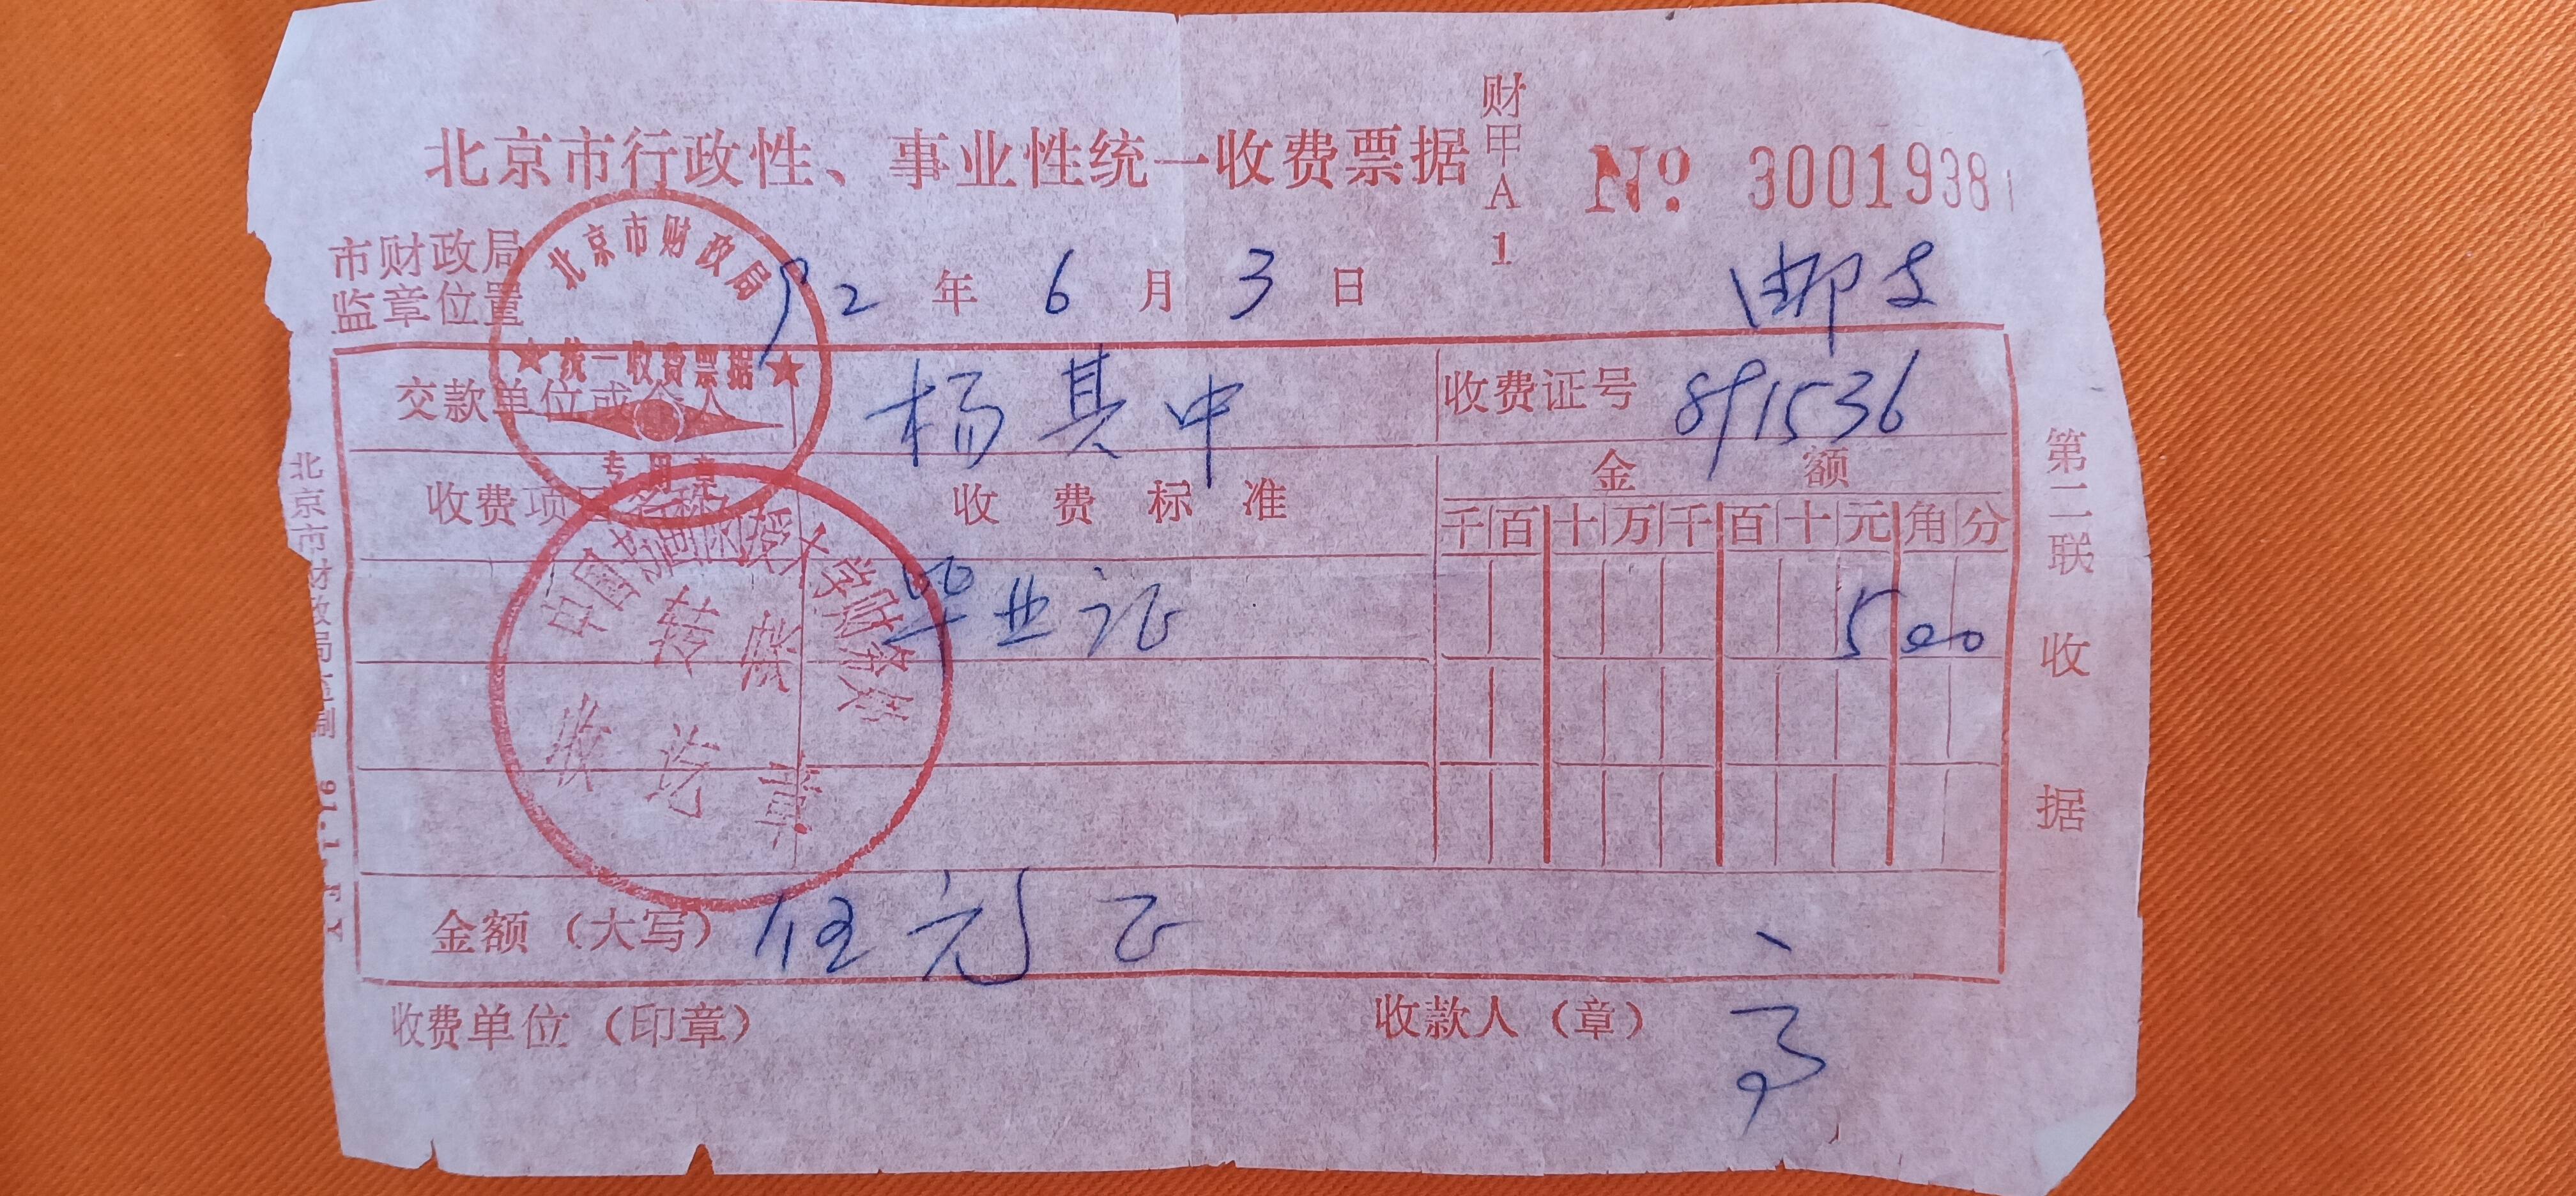 北京市行政性、事业性统一收费票据
财甲A1
№ 30019381
市财政局
监章位置
92年6月3日
邮支
北京市财政局
★统一收费票据★
专用章
交款单位或个人 杨其中 收费证号 891536
收费项目名称 收费标准 金额
千百十万千百十元角分
毕业证 500
中国书画函授大学财务处
转帐
收讫章
金额（大写） 伍元正
收费单位（印章） 收款人（章） 高
第二联 收据
北京市财政局 91.1